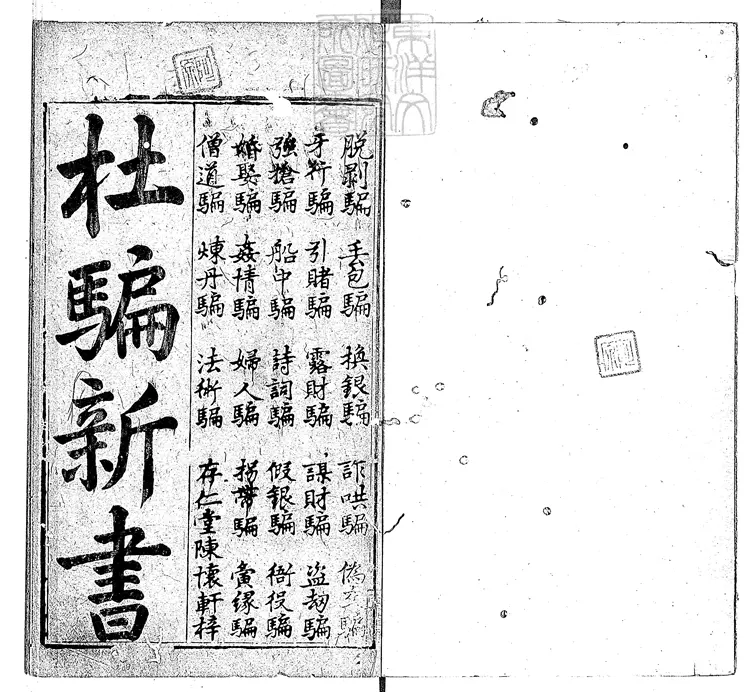 脫剥騙 丟包騙 換銀騙 詐哄騙 偽交騙
牙行騙 引賭騙 露財騙 謀財騙 盜劫騙
強搶騙 船中騙 詩詞騙 假銀騙 衙役騙
婚娶騙 姦情騙 婦人騙 拐帶騙 緣騙
僧道騙 煉丹騙 法術騙 存仁堂陳懷軒梓
杜騙新書